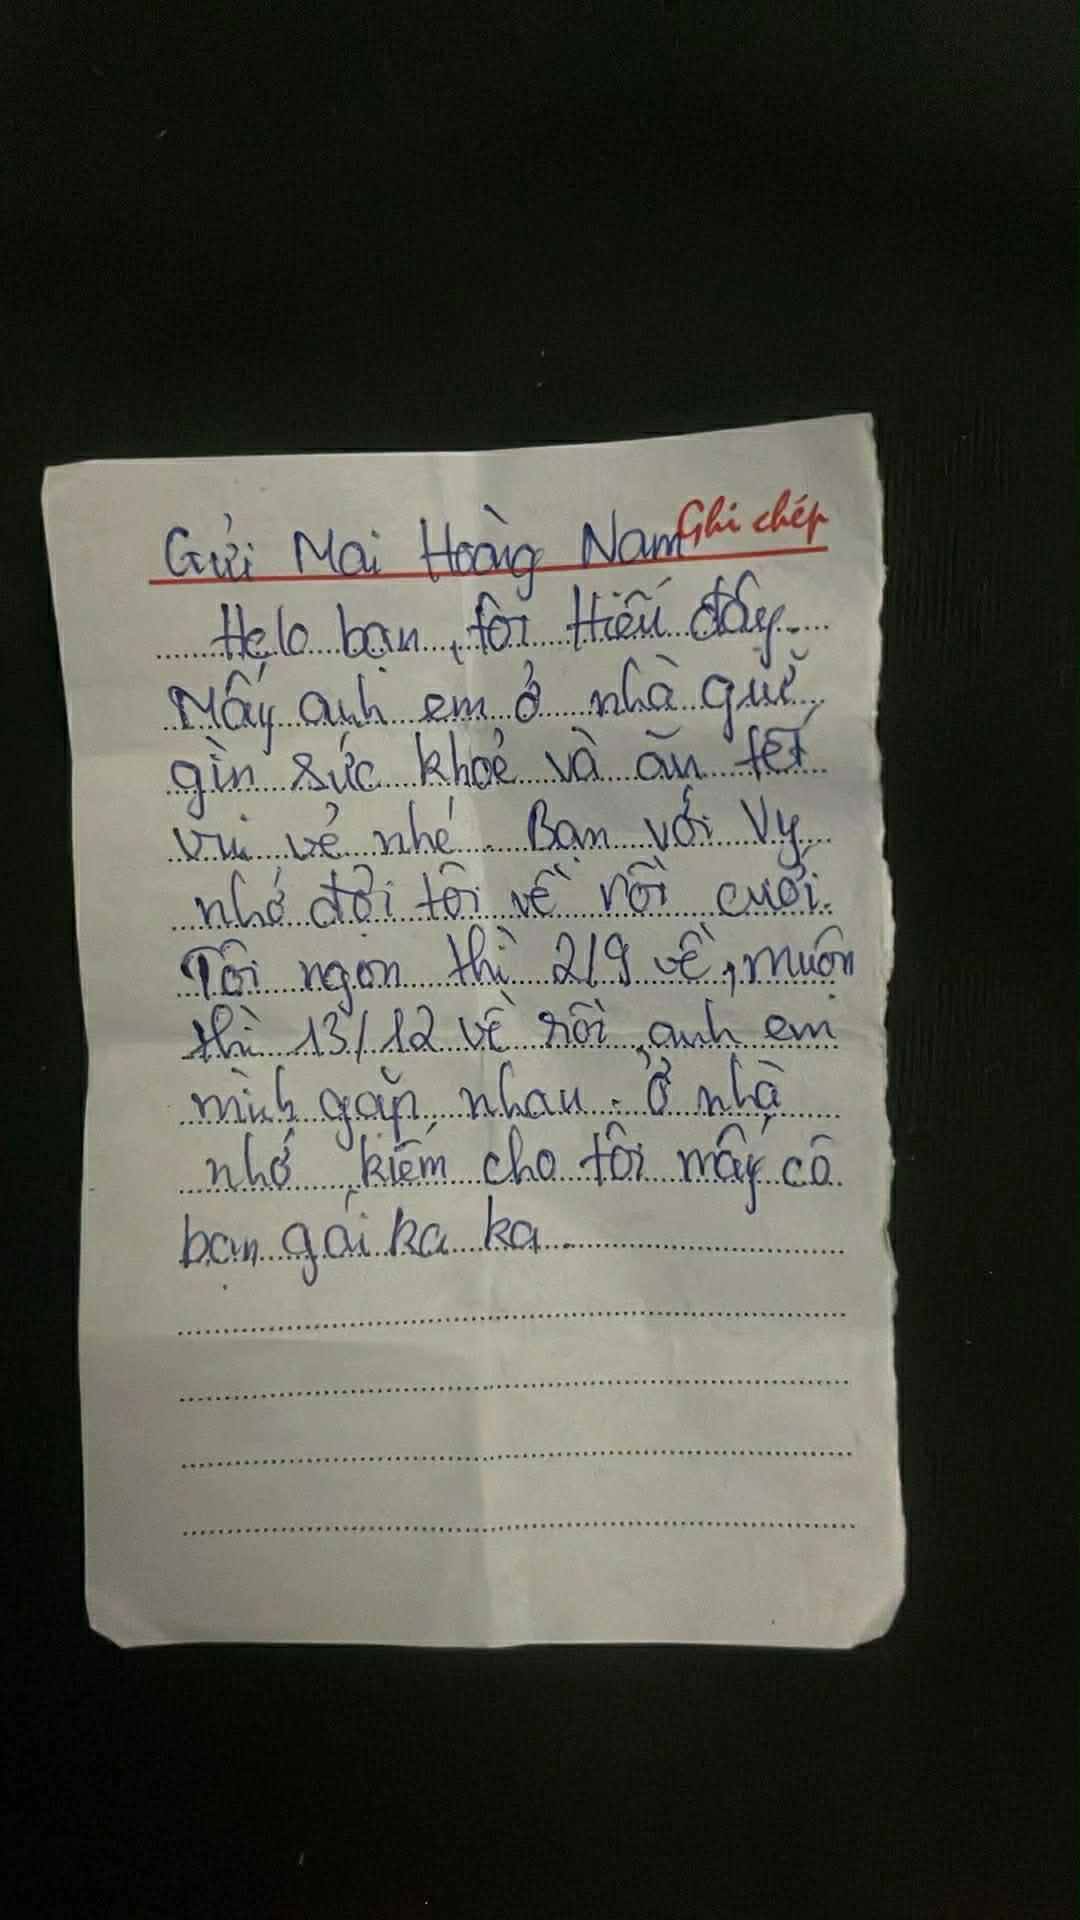 Gửi Mai Hoàng Nam Ghi chép
Helo bạn, tôi Hiếu đây.
Mấy anh em ở nhà giữ
gìn sức khoẻ và ăn tết
vui vẻ nhé. Bạn với Vy
nhớ đợi tôi về rồi cưới.
Tôi ngon thì 2/9 về, muộn
thì 13/12 về rồi anh em
mình gặp nhau. Ở nhà
nhớ kiếm cho tôi mấy cô
bạn gái ka ka.